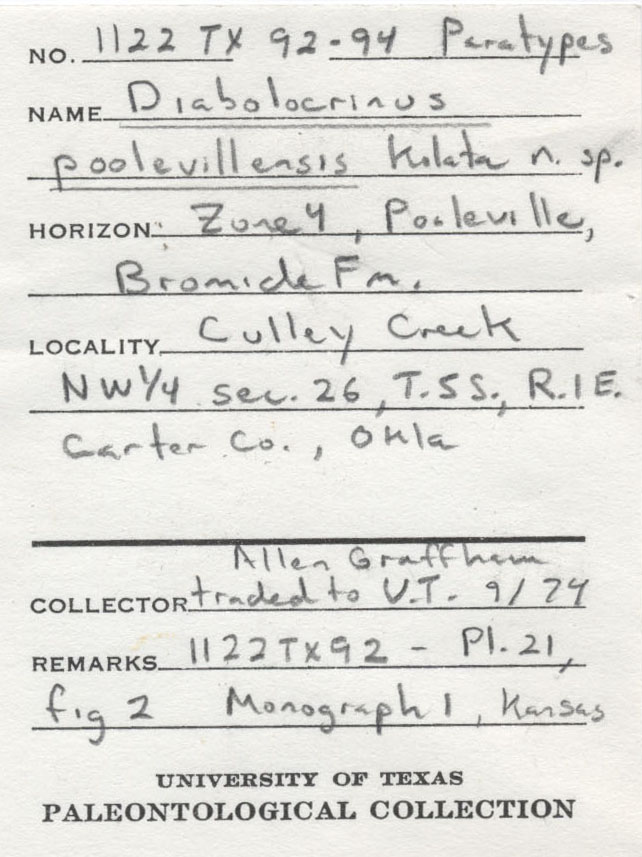 NO. 1122 TX 92-94 Paratypes
NAME Diabolocrinus
poolevillensis Kolata n. sp.
HORIZON: Zone 4, Pooleville,
Bromide Fm.
LOCALITY Culley Creek
NW 1/4 sec. 26, T.5S., R.1E.
Carter Co., Okla
Allen Graffham
COLLECTOR traded to U.T. 9/74
REMARKS 1122TX92 - Pl. 21,
fig 2 Monograph 1, Kansas
UNIVERSITY OF TEXAS
PALEONTOLOGICAL COLLECTION